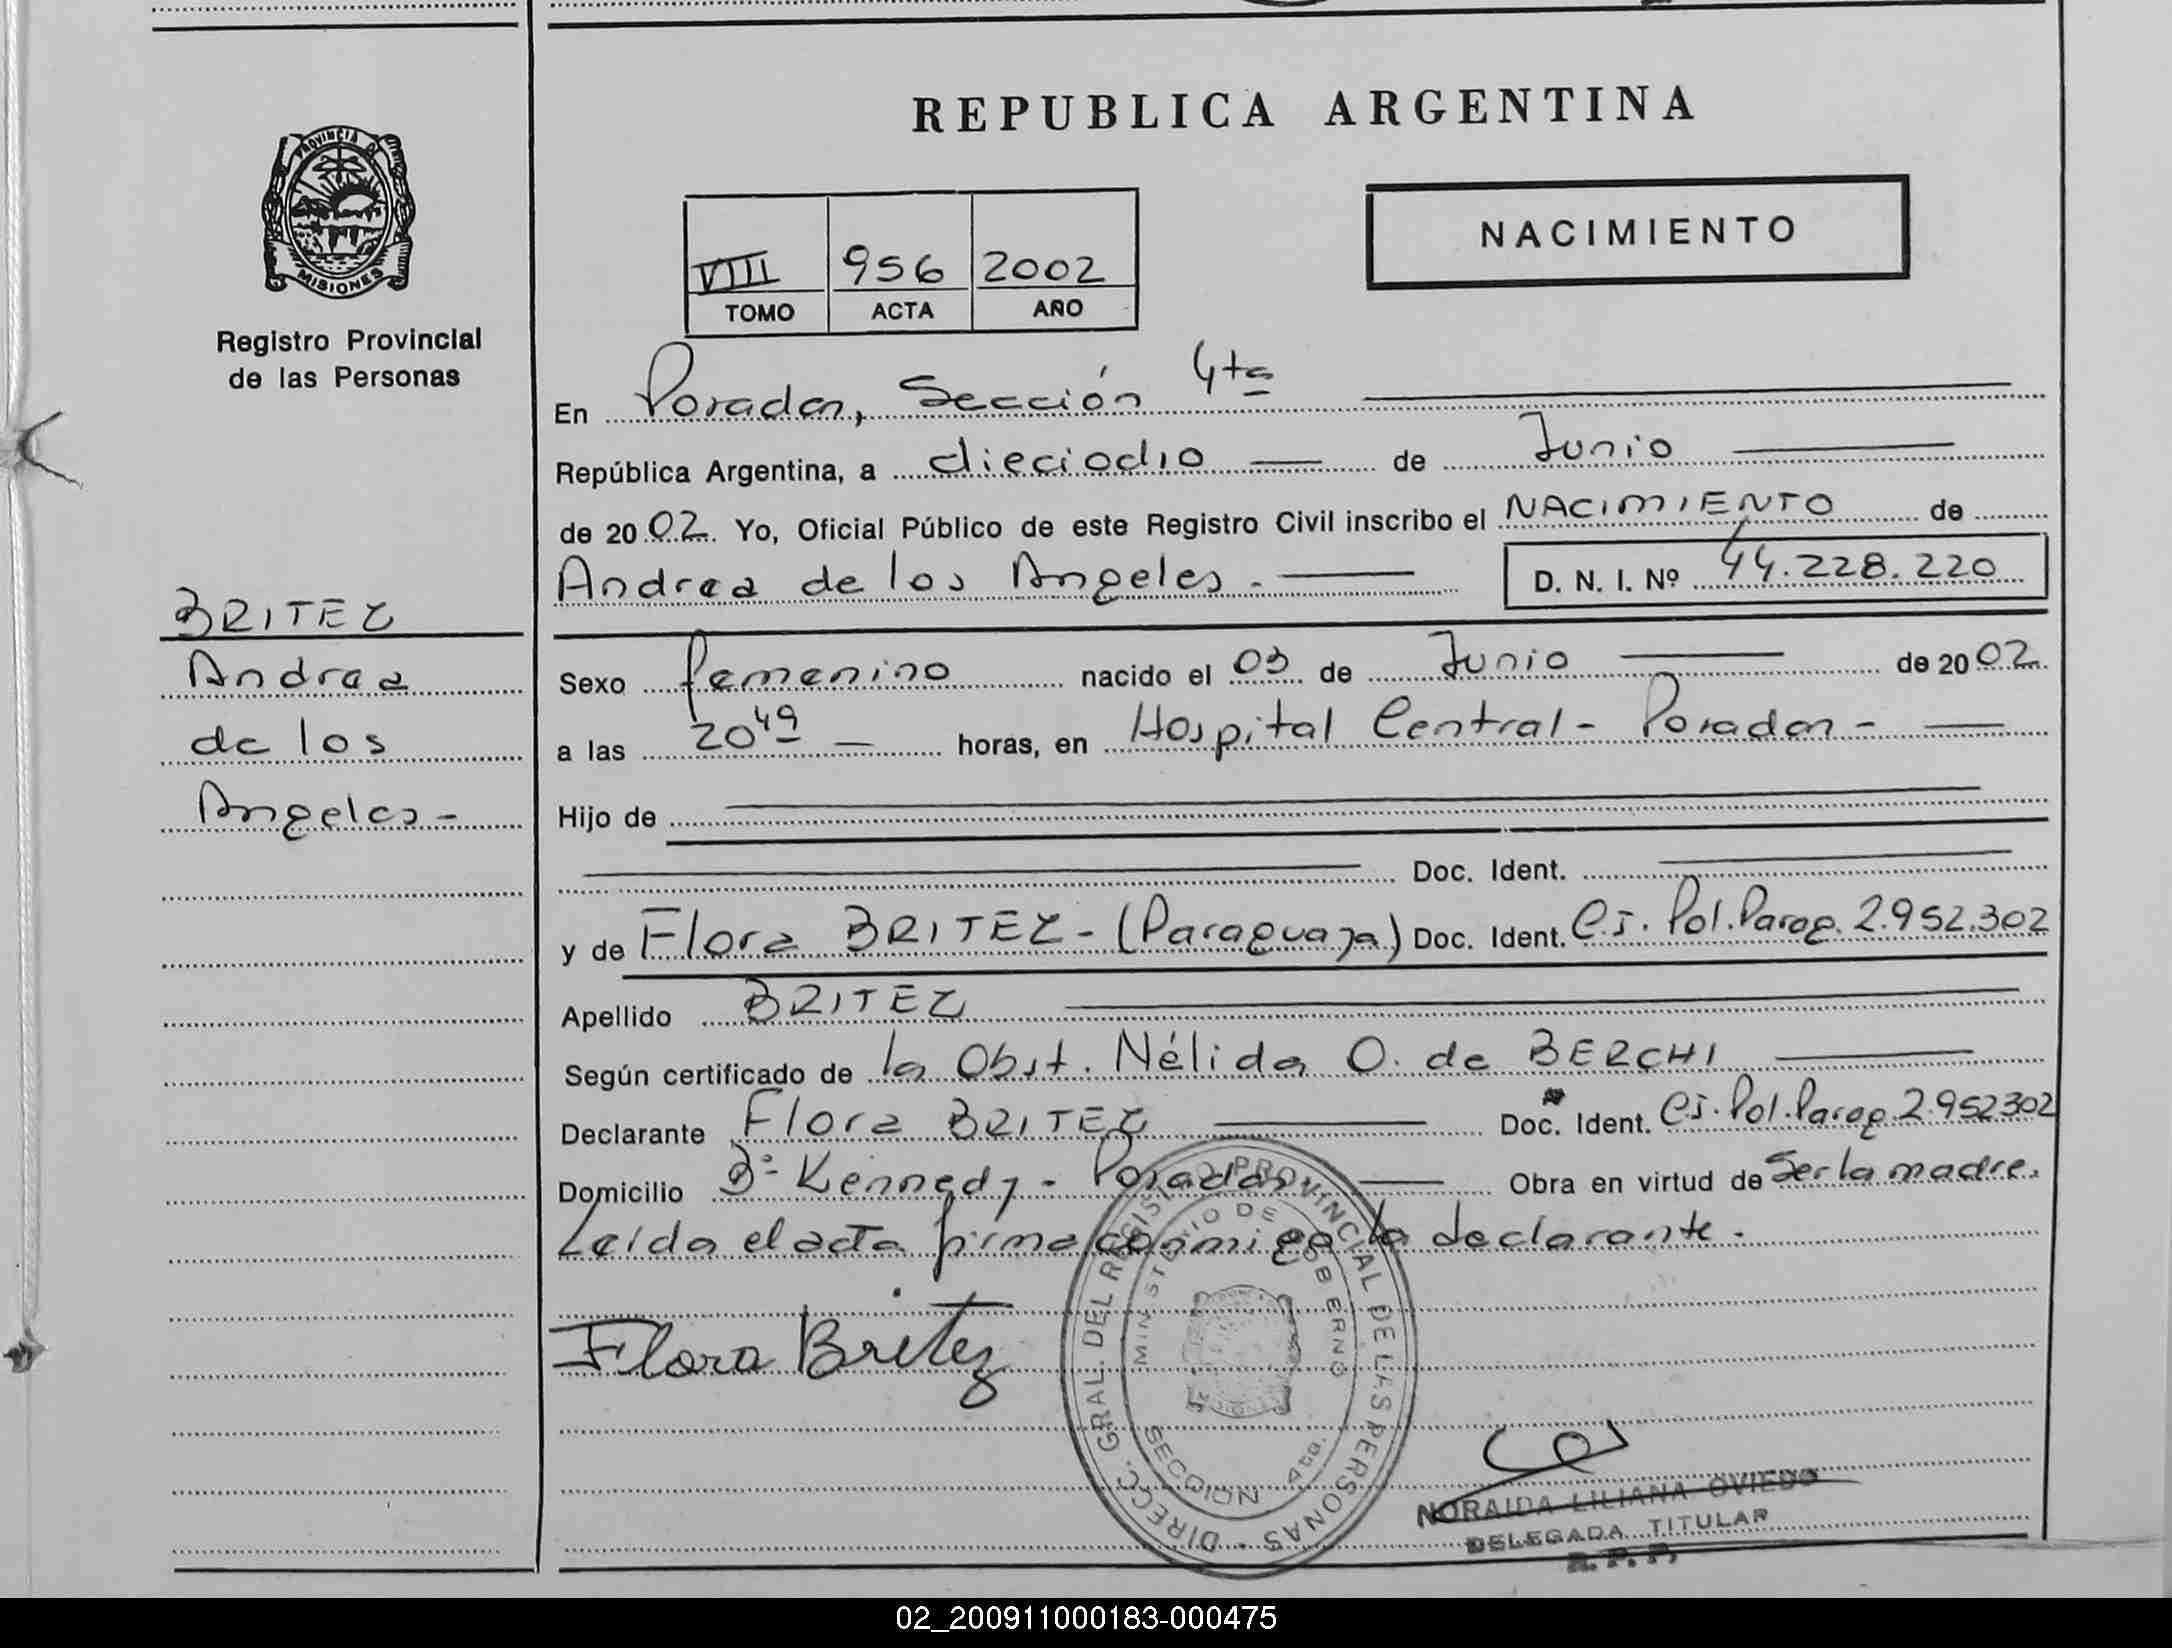 PROVINCIA DE
MISIONES
Registro Provincial
de las Personas
BRITEZ
Andrea
de los
Angeles-
REPUBLICA ARGENTINA
NACIMIENTO
VIII 956 2002
TOMO ACTA AÑO
En Posadas, Sección 4ta
República Argentina, a dieciocho de Junio
de 2002. Yo, Oficial Público de este Registro Civil inscribo el NACIMIENTO de
Andrea de los Angeles.- D. N. I. Nº 44.228.220
Sexo femenino nacido el 03 de Junio de 2002.
a las 20 49 horas, en Hospital Central - Posadas -
Hijo de
Doc. Ident.
y de Flora BRITEZ - (Paraguaya) Doc. Ident. C.I. Pol. Parag. 2.952.302
Apellido BRITEZ
Según certificado de la Obst. Nélida O. de BERCHI
Declarante Flora BRITEZ Doc. Ident. C.I. Pol. Parag. 2.952302
Domicilio Bº Kennedy - Posadas. Obra en virtud de Ser la madre.
Leída el acta firma conmigo la declarante.
Flora Britez
DIRECC. GRAL. DEL REGISTRO PROVINCIAL DE LAS PERSONAS
MINISTERIO DE GOBIERNO
SECCION 4ta.
NORAIDA LILIANA OVIEDO
DELEGADA TITULAR
R. P. P.
02_200911000183-000475